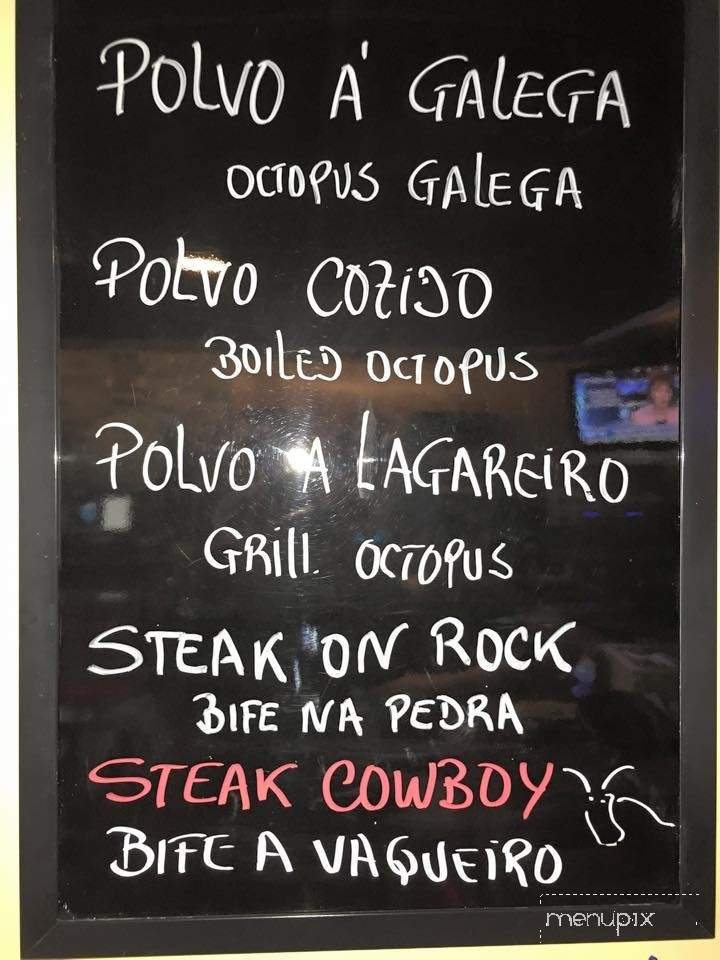 POLVO A' GALEGA
OCTOPUS GALEGA
POLVO COZIDO
BOILED OCTOPUS
POLVO A LAGAREIRO
GRILL. OCTOPUS
STEAK ON ROCK
BIFE NA PEDRA
STEAK COWBOY
BIFE A VAQUEIRO
menupix